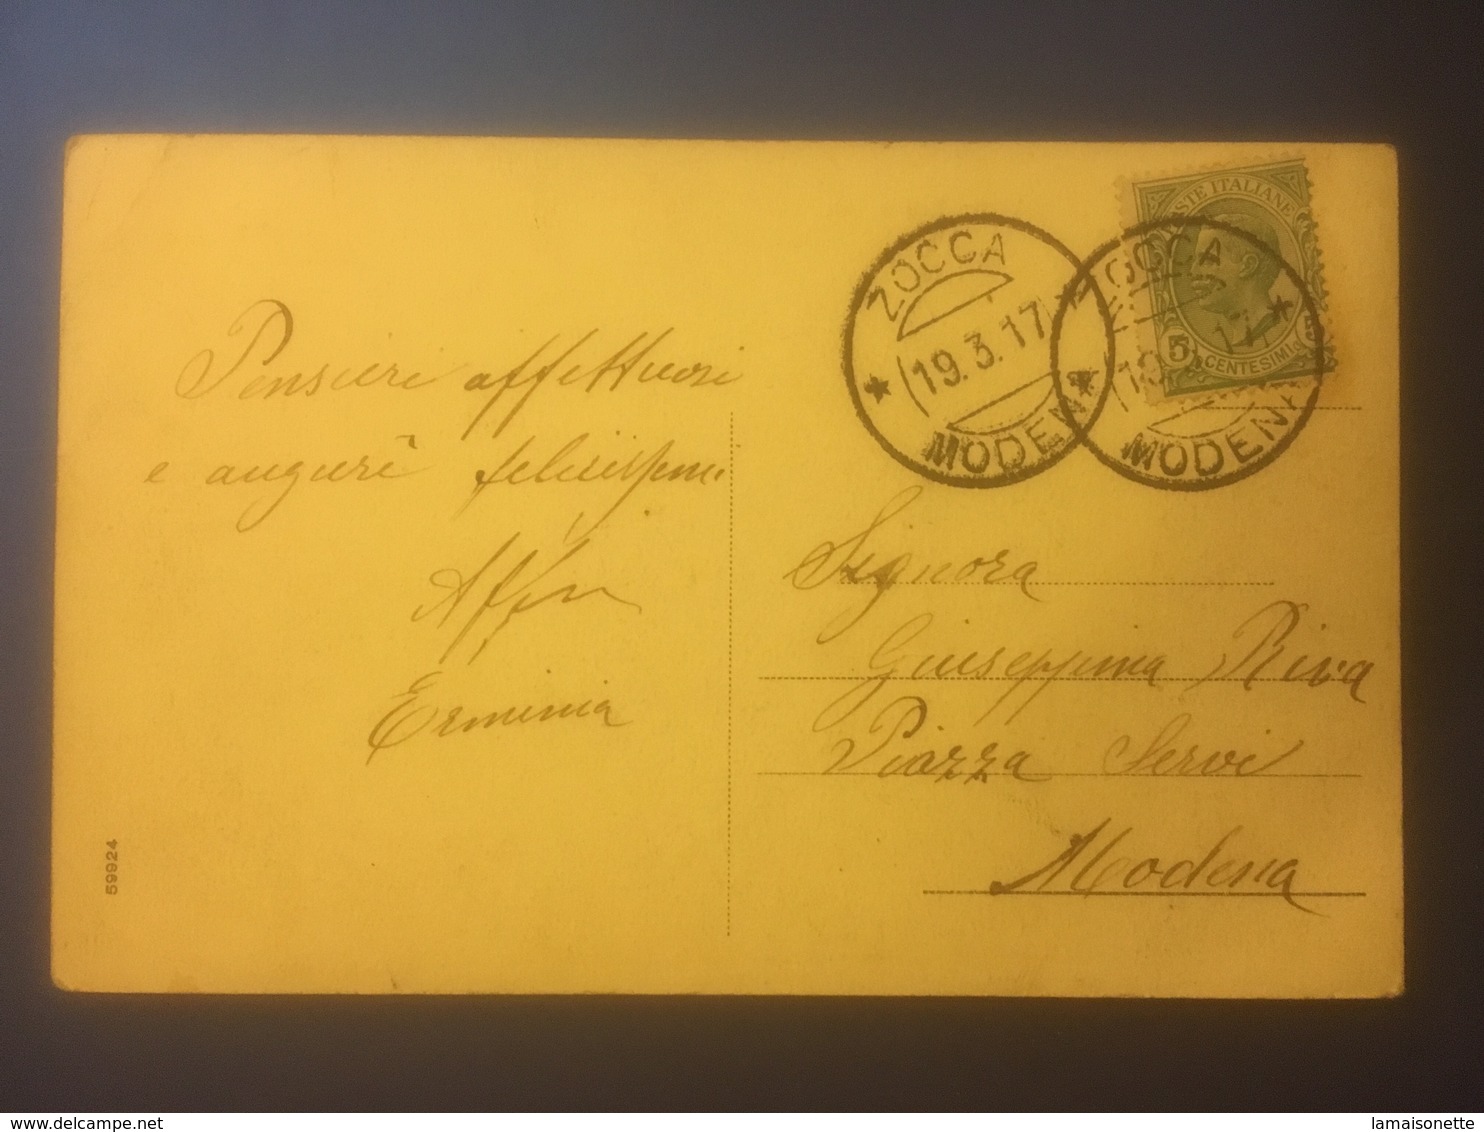 Pensieri affettuosi
e auguri felicissimi
Aff.ma
Erminia
59924
ZOCCA
19.3.17
MODENA
ZOCCA
19.3.17
MODENA
POSTE ITALIANE
5 CENTESIMI 5
Signora
Giuseppina Riva
Piazza Servi
Modena
www.delcampe.net
lamaisonette